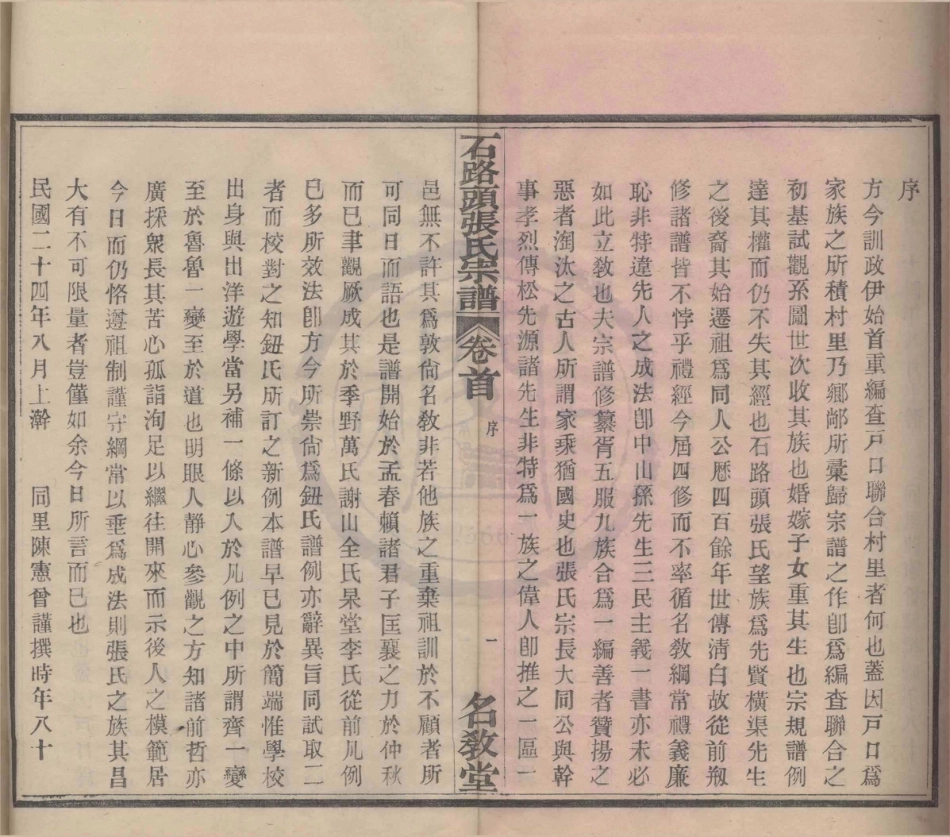 序
方今訓政伊始首重編查戸口聯合村里者何也蓋因戸口爲
家族之所積村里乃鄉鄙所彙歸宗譜之作卽爲編查聯合之
初基試觀系圖世次收其族也婚嫁子女重其生也宗規譜例
達其權而仍不失其經也石路頭張氏望族爲先賢橫渠先生
之後裔其始遷祖爲同人公歷四百餘年世傳淸白故從前剏
修諸譜皆不悖乎禮經今屆四修而不率循名敎綱常禮義廉
恥非特違先人之成法卽中山孫先生三民主義一書亦未必
如此立敎也夫宗譜修纂胥五服九族合爲一編善者贊揚之
惡者淘汰之古人所謂家乘猶國史也張氏宗長大同公與幹
事孝烈傳松先源諸先生非特爲一族之偉人卽推之一區一
石路頭張氏宗譜 卷首 序 一 名敎堂
邑無不許其爲敦尙名敎非若他族之重棄祖訓於不顧者所
可同日而語也是譜開始於孟春賴諸君子匡襄之力於仲秋
而已聿觀厥成其於季野萬氏謝山全氏杲堂李氏從前凡例
已多所效法卽方今所崇尙爲鈕氏譜例亦辭異旨同試取二
者而校對之知鈕氏所訂之新例本譜早已見於簡端惟學校
出身與出洋遊學當另補一條以入於凡例之中所謂齊一變
至於魯魯一變至於道也明眼人靜心參觀之方知諸前哲亦
廣採衆長其苦心孤詣洵足以繼往開來而示後人之模範居
今日而仍恪遵祖制謹守綱常以垂爲成法則張氏之族其昌
大有不可限量者豈僅如余今日所言而已也
民國二十四年八月上澣 同里陳憲曾謹撰時年八十